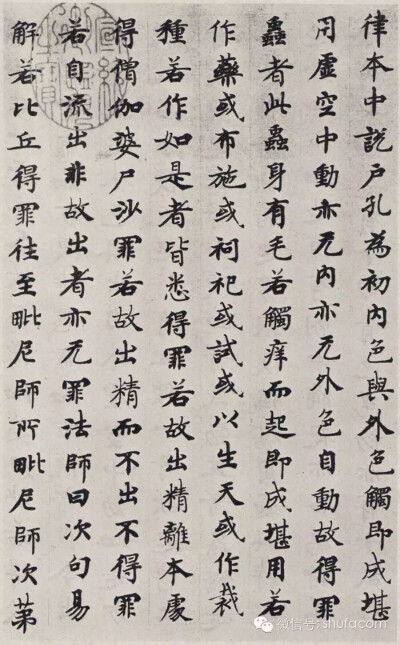 律本中說戶孔為初內色與外色觸即成堪
用虛空中動亦无內亦无外色自動故得罪
蟲者此蟲身有毛若觸痒而起即成堪用若
作藥或布施或祠祀或試或以生天或作栽
種若作如是者皆悉得罪若故出精離本處
得僧伽婆尸沙罪若故出精而不出不得罪
若自流出非故出者亦无罪法師曰次句易
解若比丘得罪往至毗尼師所毗尼師次第
微信号: shufacom